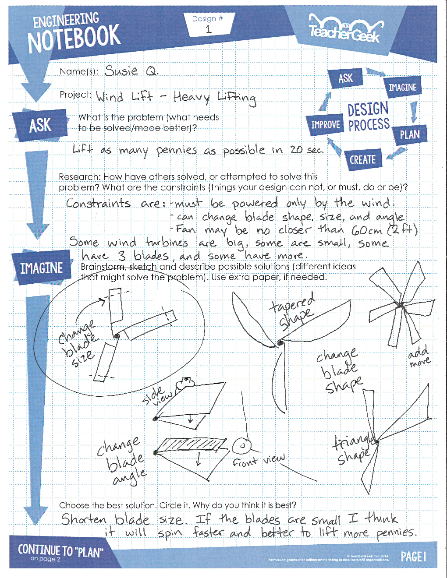 ENGINEERING
NOTEBOOK
Design #
1
TeacherGeek
Name(s): Susie Q.
Project: Wind Lift - Heavy Lifting
ASK
IMAGINE
PLAN
CREATE
IMPROVE
DESIGN
PROCESS
ASK
What is the problem (what needs
to be solved/made better)?
Lift as many pennies as possible in 20 sec.
Research: How have others solved, or attempted to solve this
problem? What are the constraints (things your design can not, or must, do or be)?
Constraints are: - must be powered only by the wind.
- can change blade shape, size, and angle
- Fan may be no closer than 60cm (2ft)
Some wind turbines are big, some are small, some
have 3 blades, and some have more.
IMAGINE
Brainstorm, sketch and describe possible solutions (different ideas
that might solve the problem). Use extra paper, if needed.
change
blade
size
tapered
shape
add
more
change
blade
shape
side
view
change
blade
angle
front view
triangle
shape
Choose the best solution. Circle it. Why do you think it is best?
Shorten blade size. If the blades are small I think
it will spin faster and better to lift more pennies.
CONTINUE TO "PLAN"
on page 2
PAGE 1